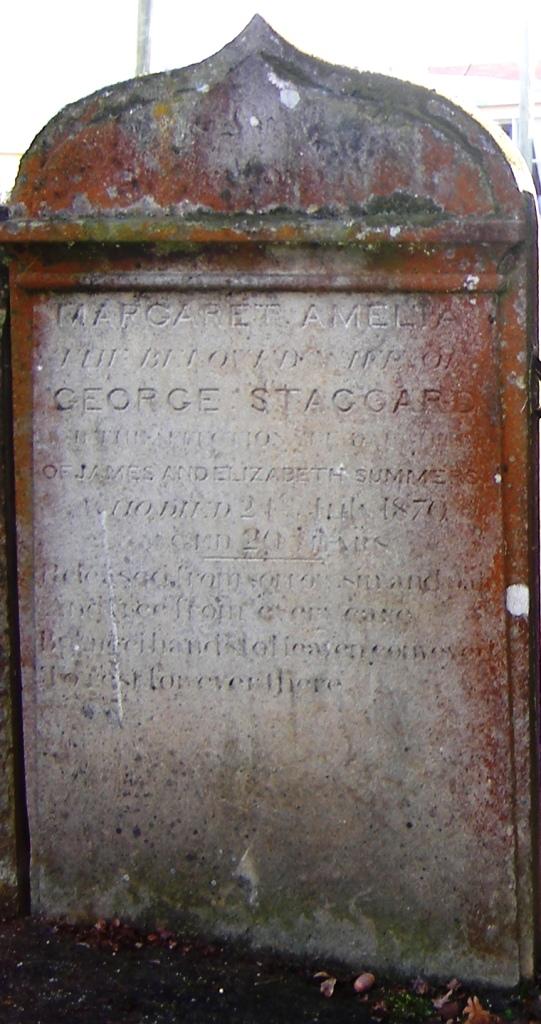 MARGARET AMELIA
THE BELOVED WIFE OF
GEORGE STAGGARD
AFFECTIONATE DAUGHTER
OF JAMES AND ELIZABETH SUMMERS
WHO DIED 24th July 1870
AGED 20 YEARS
Released from sorrow sin and pain
And free from every care
By angel hands to Heaven conveyed
To rest for ever there